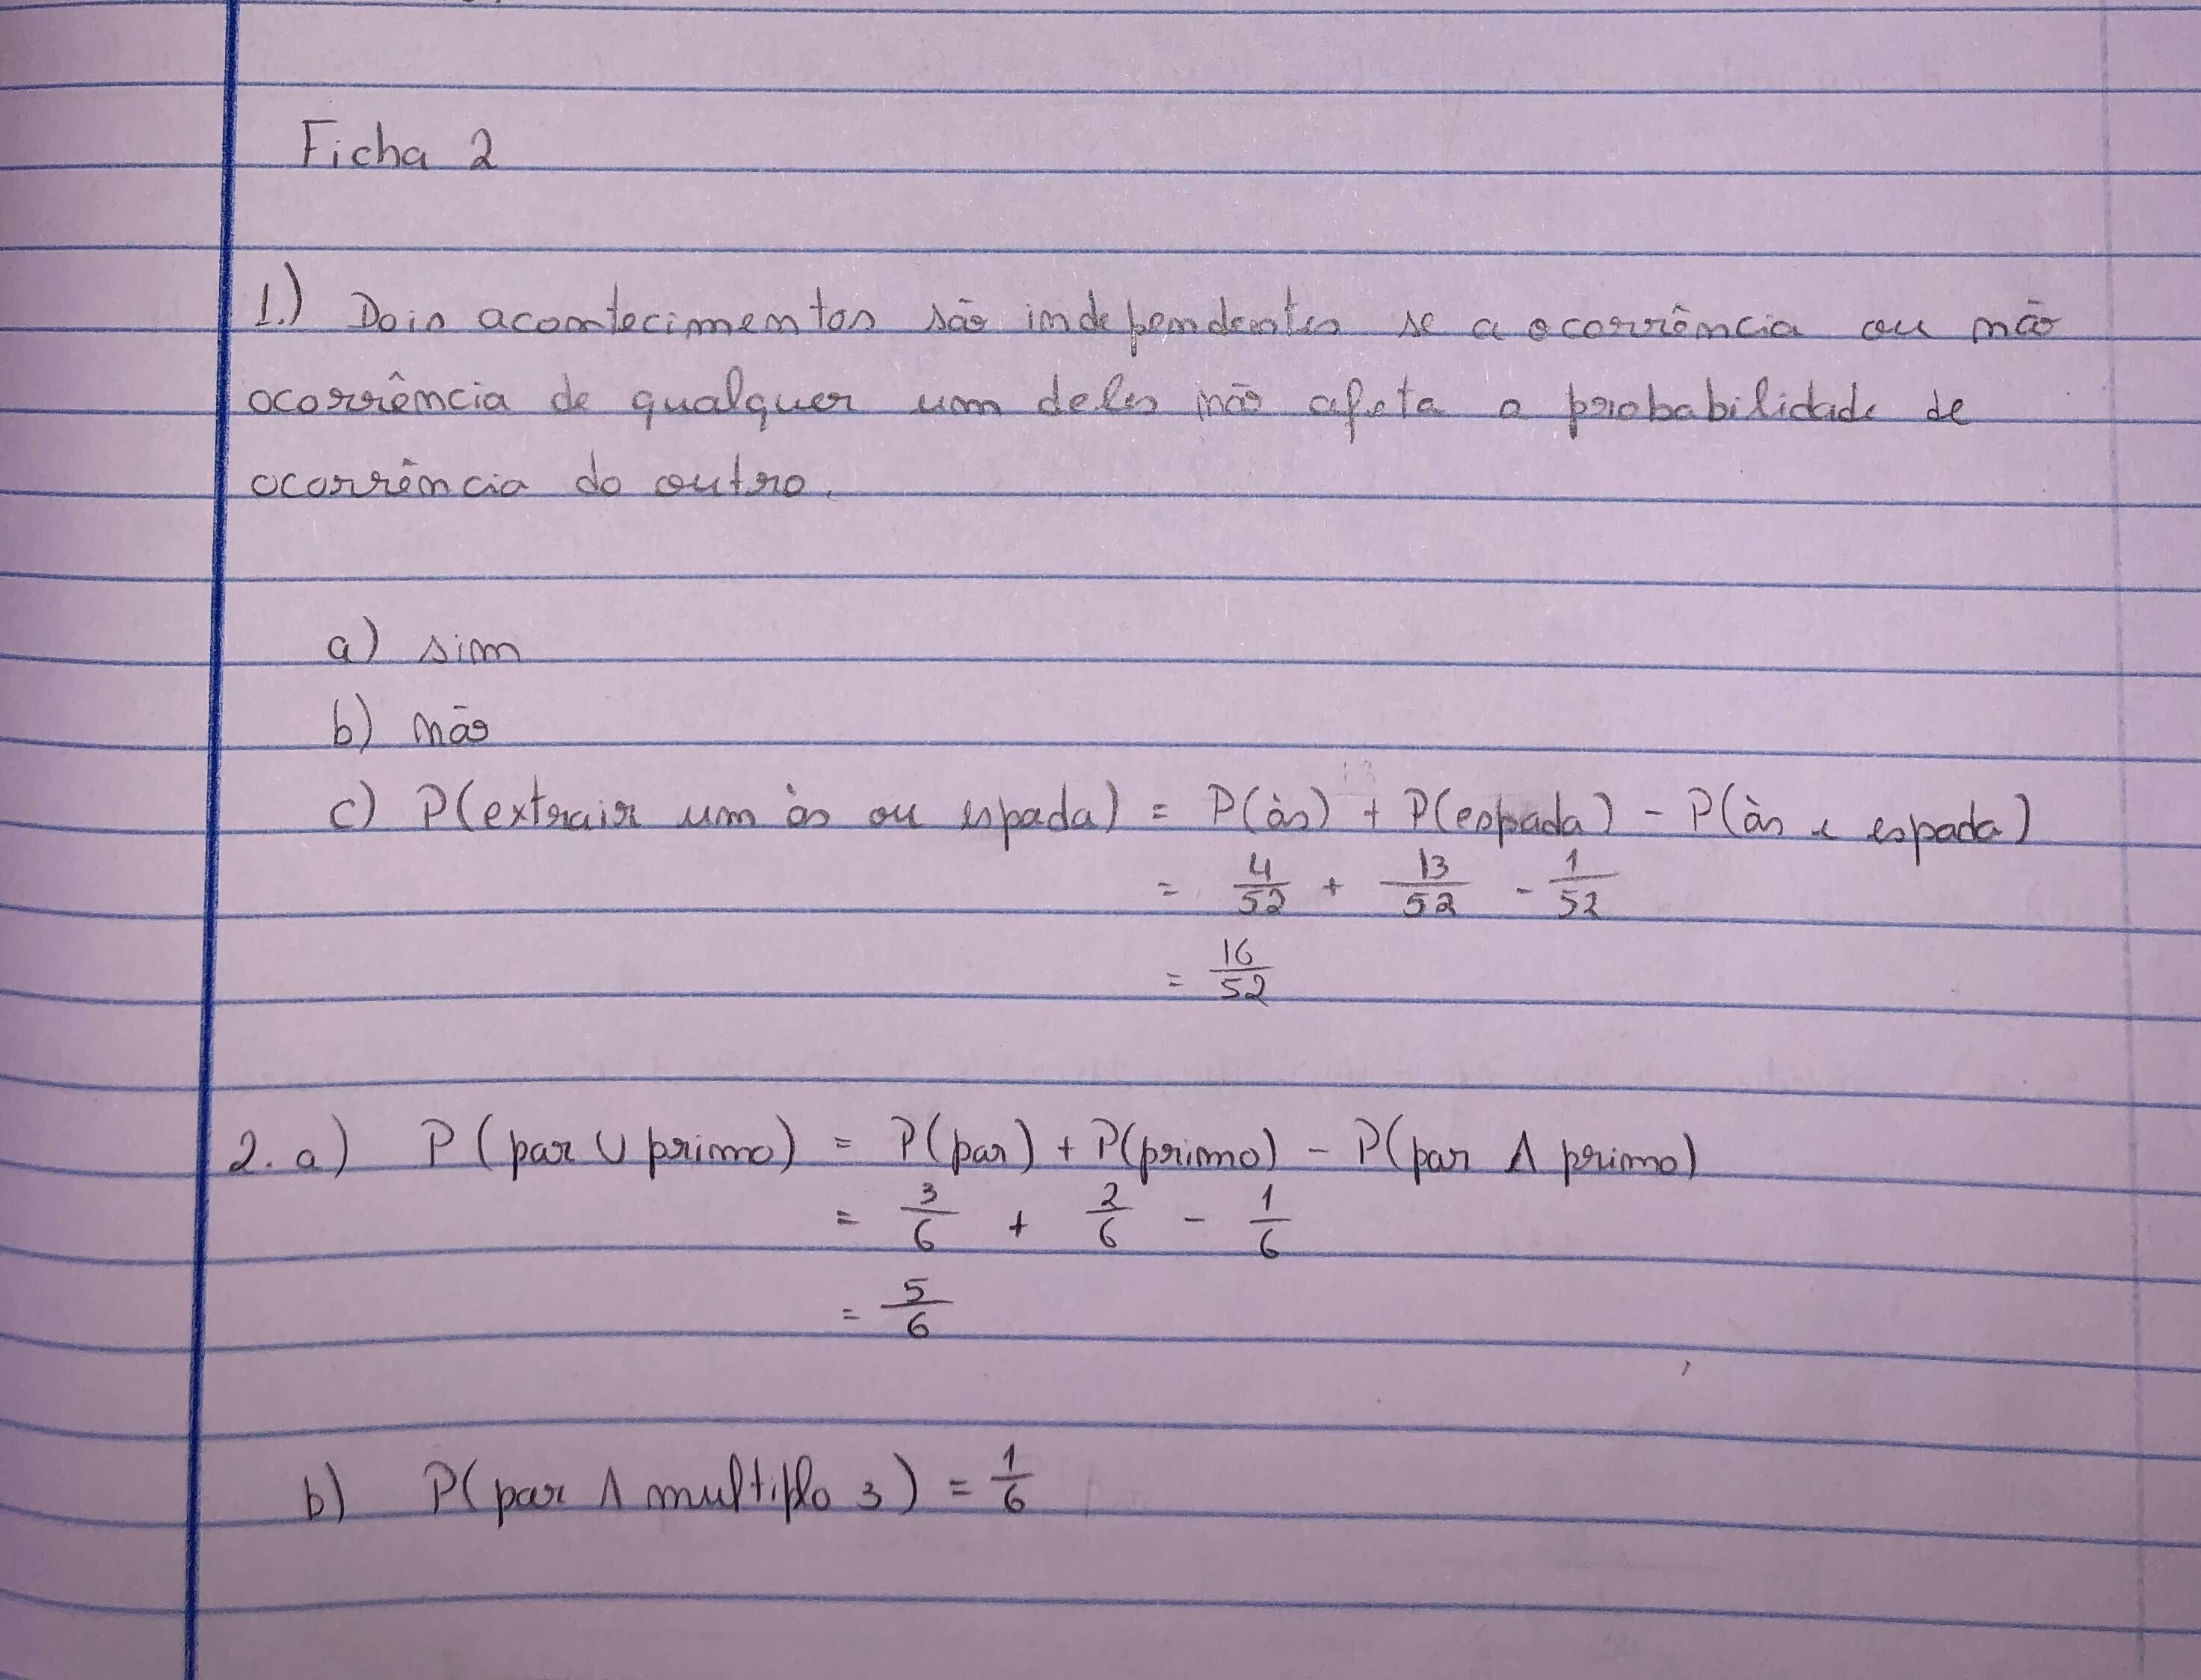 Ficha 2
1.) Dois acontecimentos são independentes se a ocorrência ou não
ocorrência de qualquer um deles não afeta a probabilidade de
ocorrência do outro.
a) sim
b) não
c) P(extrair um às ou espada) = P(às) + P(espada) - P(às e espada)
= 4/52 + 13/52 - 1/52
= 16/52
2. a) P(par ∪ primo) = P(par) + P(primo) - P(par ∧ primo)
= 3/6 + 2/6 - 1/6
= 5/6
b) P(par ∧ multiplo 3) = 1/6